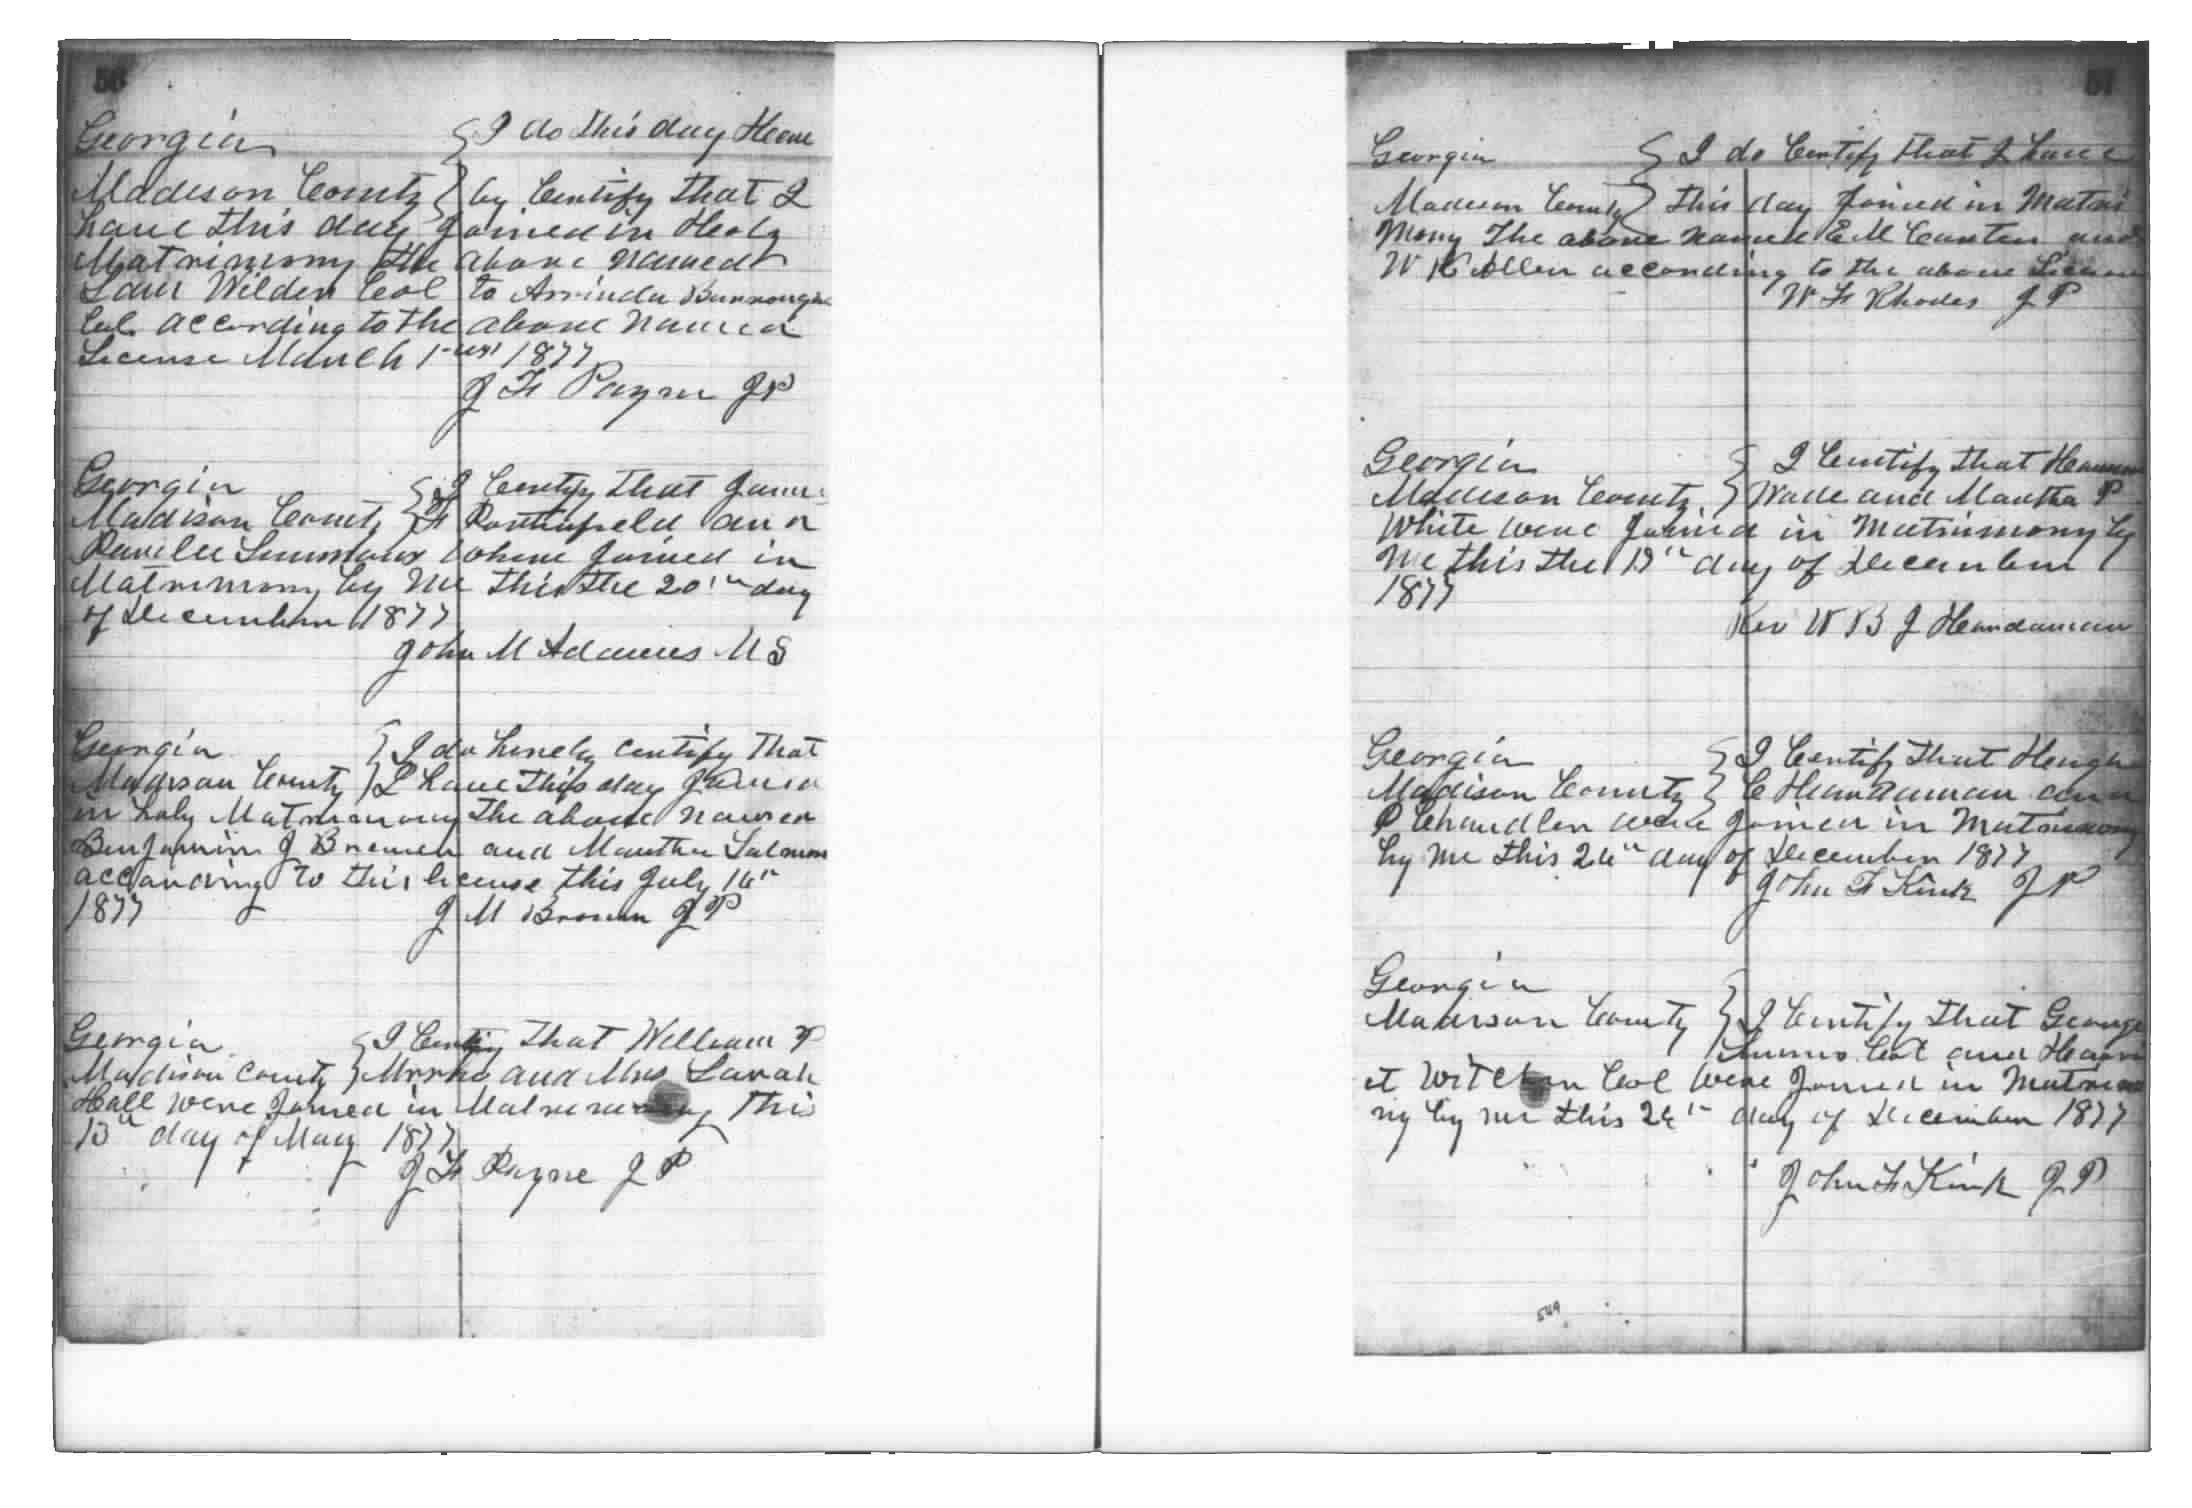 56
Georgia } I do this day Heare
Madison County } by Certify that I
have this day Joined in Holy
Matrimony the above named
Wilder Col to Arrinda Burrough
Col according to the above named
License March 1 1877
J F Payne J P
Georgia } I Certify that James
Madison County } F and
where Joined in
Matrimony by Me this the 20th day
of December 1877
John M Adams M G
Georgia } I do hereby certify that
Madison County } I have this day Joined
in holy Matrimony the above named
Benjamin J and Martha
according to this license this July
1877 J M Brown J P
Georgia } I Certify that William P
Madison County } and Mrs Sarah
Hall were Joined in Matrimony This
13th day of May 1877
J F Payne J P
57
Georgia } I do Certify that I have
Madison County } this day Joined in Matri
mony The above named E M Carter and
W H Allen according to the above License
W F Rhodes J P
Georgia } I Certify that
Madison County } Wade and Martha P
White were Joined in Matrimony by
Me this the day of December
1877
Rev W B J Hardaman
Georgia } I Certify that
Madison County } C Hardaman and
P Chandler were Joined in Matrimony
by me this day of December 1877
John F Kirk J P
Georgia
Madison County } I Certify that George
Col and
et Col were Joined in Matrimo
ny by me this day of December 1877
John F Kirk J P
549